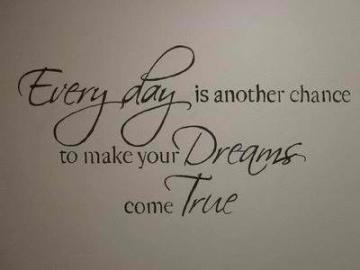 Every day is another chance
to make your Dreams
come True